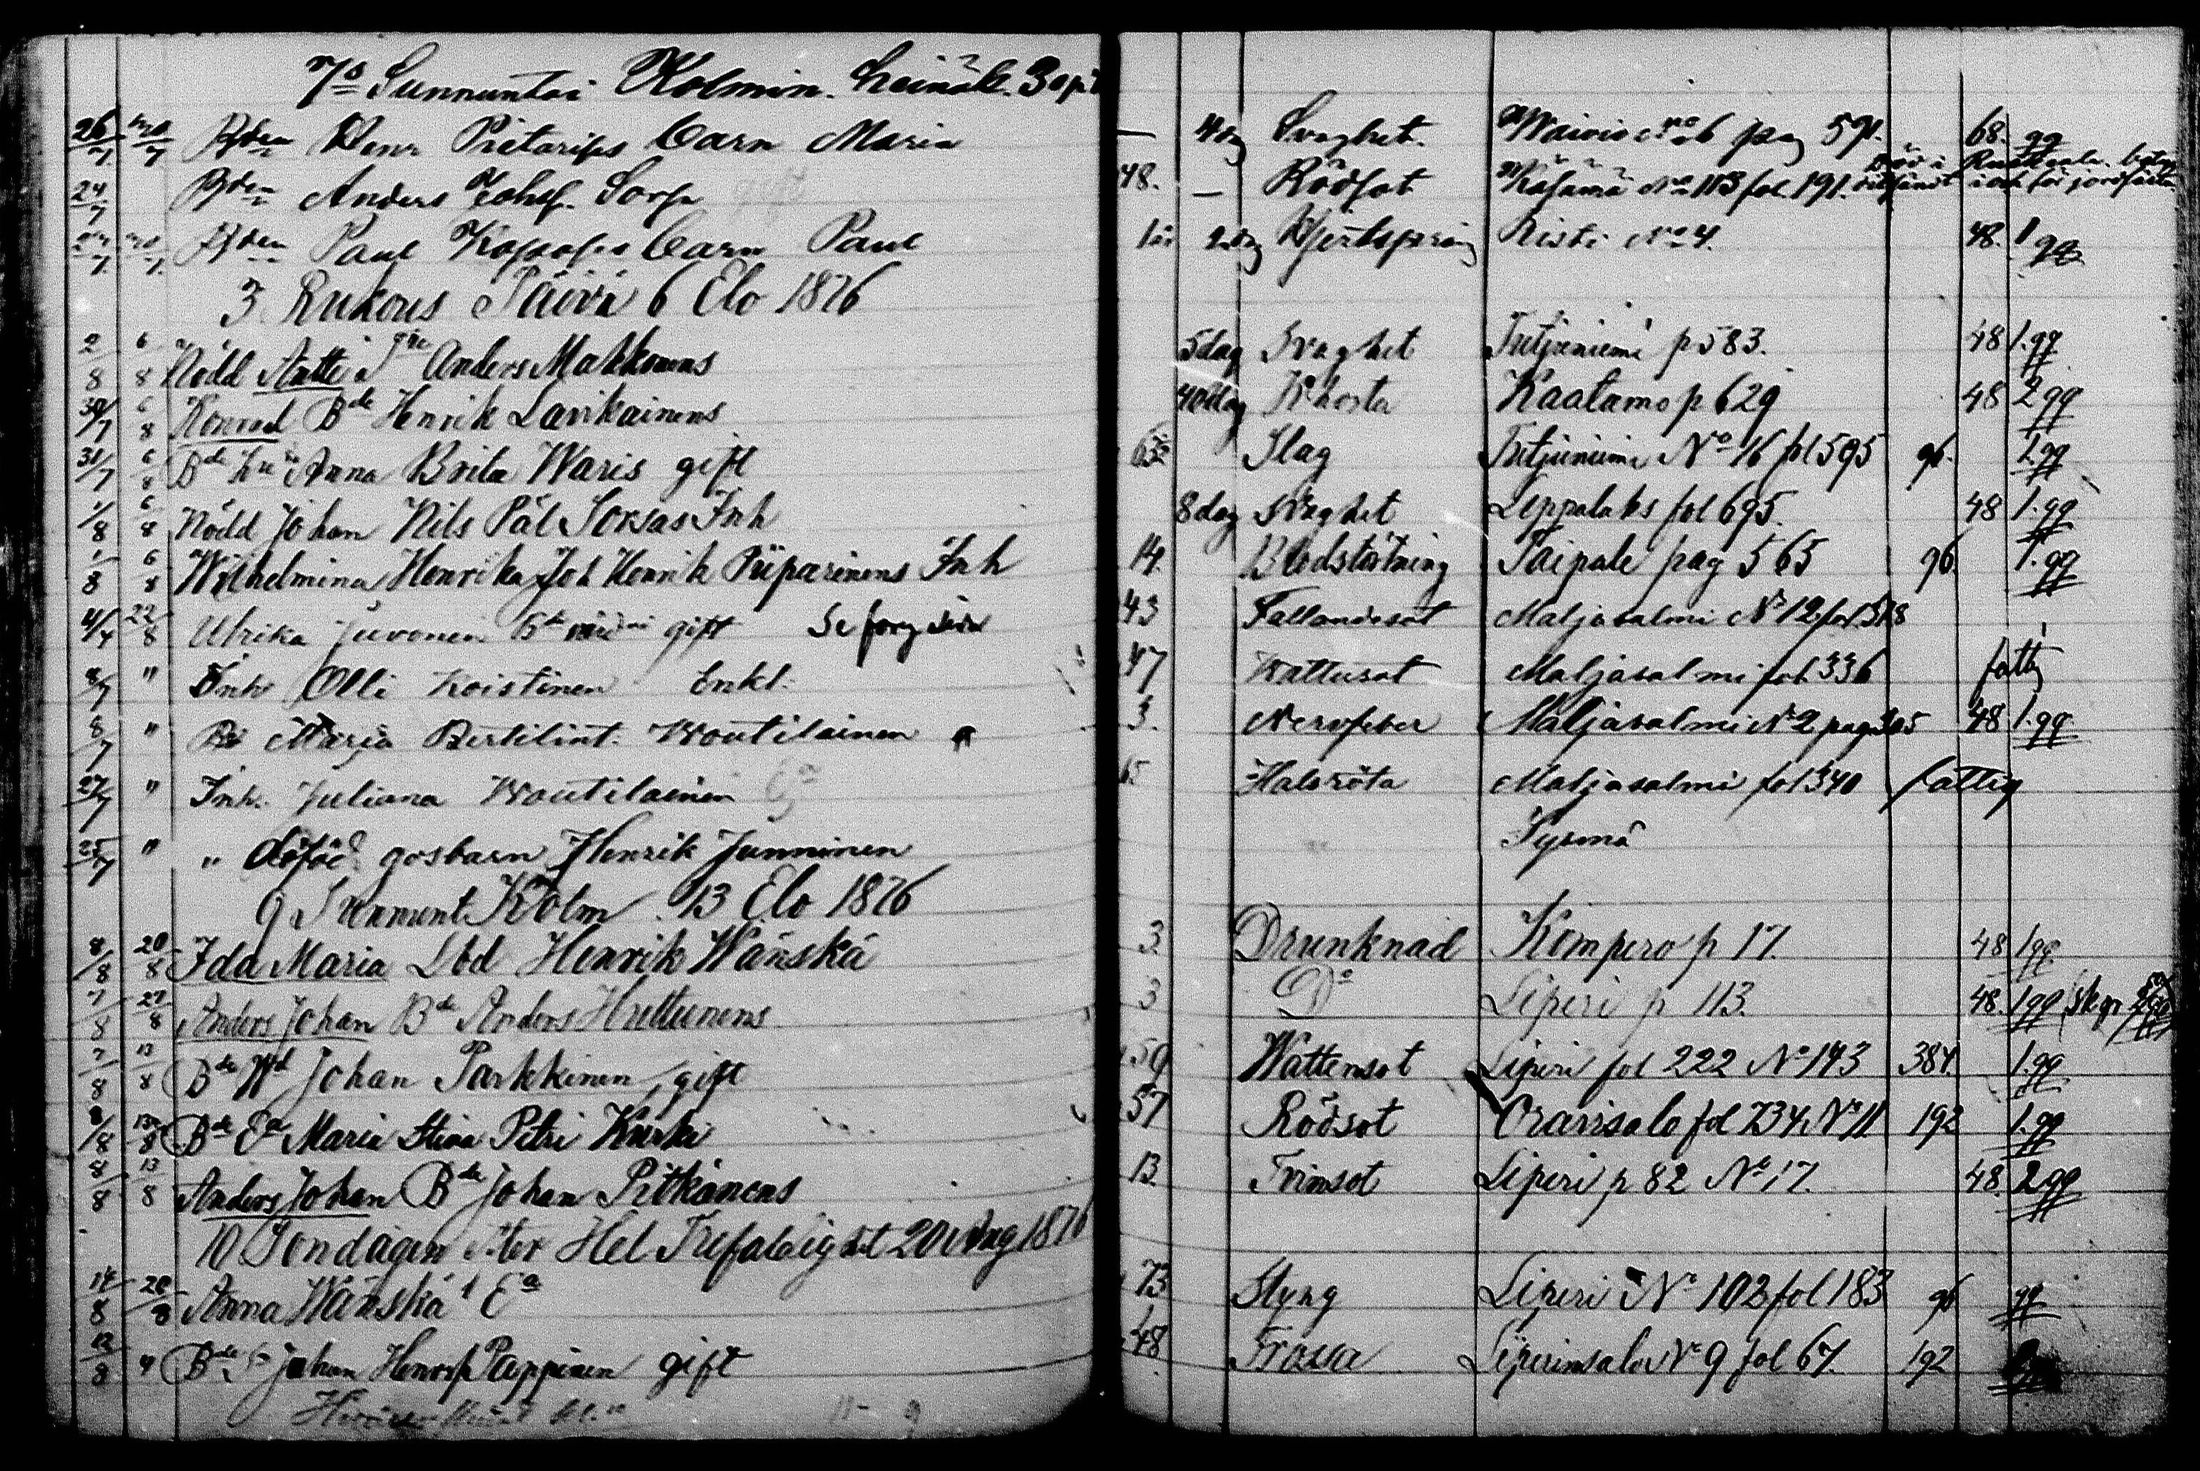 7s Sunnuntai Kolmin. heinäk. 30 p
26/7 30/7 Bden Henr Pietarises barn Maria — 4 dag Svaghet. Waivio No 6 pag 591. 68. gg
24/7 Bden Anders Johsf. Sorsa gift 48. — Rödsot Käsämä No 113 fol. 191.
27/7 30/7 Bden Paul Kossoses barn Paul 1 år 2 dag Hjertspräng Risti No 4. 48. 1 gg
3 Rukous Päivä 6 Elo 1876
2/8 6/8 Nödd Antti Anders Mahkonens 5 dag Svaghet Tutjuniemi p 583. 48 1.gg
30/7 6/8 Konrad Bde Henrik Lavikainens 40 dag Khosta Kaatamo p 629 48 2 gg
31/7 6/8 Bde hu Anna Brita Waris gift 63 Slag Tutjuniemi No 16 fol 595 96. 1 gg
1/8 6/8 Nödd Johan Nils Pål Sorsas Inh 8 dag Svaghet Leppalaks fol 695. 48 1.gg
1/8 6/8 Wilhelmina Henrika Joh Henrik Piiparinens Inh 14 Blodstörtning Taipale pag 565 96. 1.gg
4/4 22/8 Ulrika Juvonen gift Se föreg sida 43 Fallandesot Maljasalmi No 12 fol 318
8/7 " Inh Olli Koistinen Enkl. 47 Wattusot Maljasalmi fol 336 fattig
8/7 " Bd Marja Bertilint. Woutilainen 3. Nervfeber Maljasalmi No 2 pag 305 48 1.gg
27/7 " Inh. Juliana Woutilainen 65 Halsröta Maljasalmi fol 340 fattig
25/7 " " dödföd gosbarn Henrik Junninen Sysmä
9 Sunnunt Kolm. 13 Elo 1876
8/8 20/8 Ida Maria Lbd Henrik Wänskä 3. Drunknad Kompero p 17. 48 1gg
7/8 27/8 Anders Johan Bde Anders Huttunens 3 Do Liperi p 113. 48. 1gg
7/8 13/8 Bde Wd Johan Parkkinen, gift 59 Wattensot Liperi fol 222 No 143 384. 1.gg
8/8 13/8 Bde Ea Maria Stina Petri Kurki 57 Rödsot Oravisalo fol 734 No 11 192 1.gg
8/8 13/8 Anders Johan Bde Johan Pitkänens 13 Trimsot Liperi p 82 No 17. 48. 2gg
10 Söndagen efter Hel Trefaldighet 20 Aug 1876
14/8 20/8 Anna Wänskä Ea 73 Styng Liperi No 102 fol 183 96 gg
12/8 " Bde Johan Henrsp Pappinen gift 48 Frossa Liperinsalo No 9 fol 67. 192